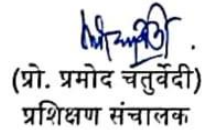 (प्रो. प्रमोद चतुर्वेदी)
प्रशिक्षण संचालक